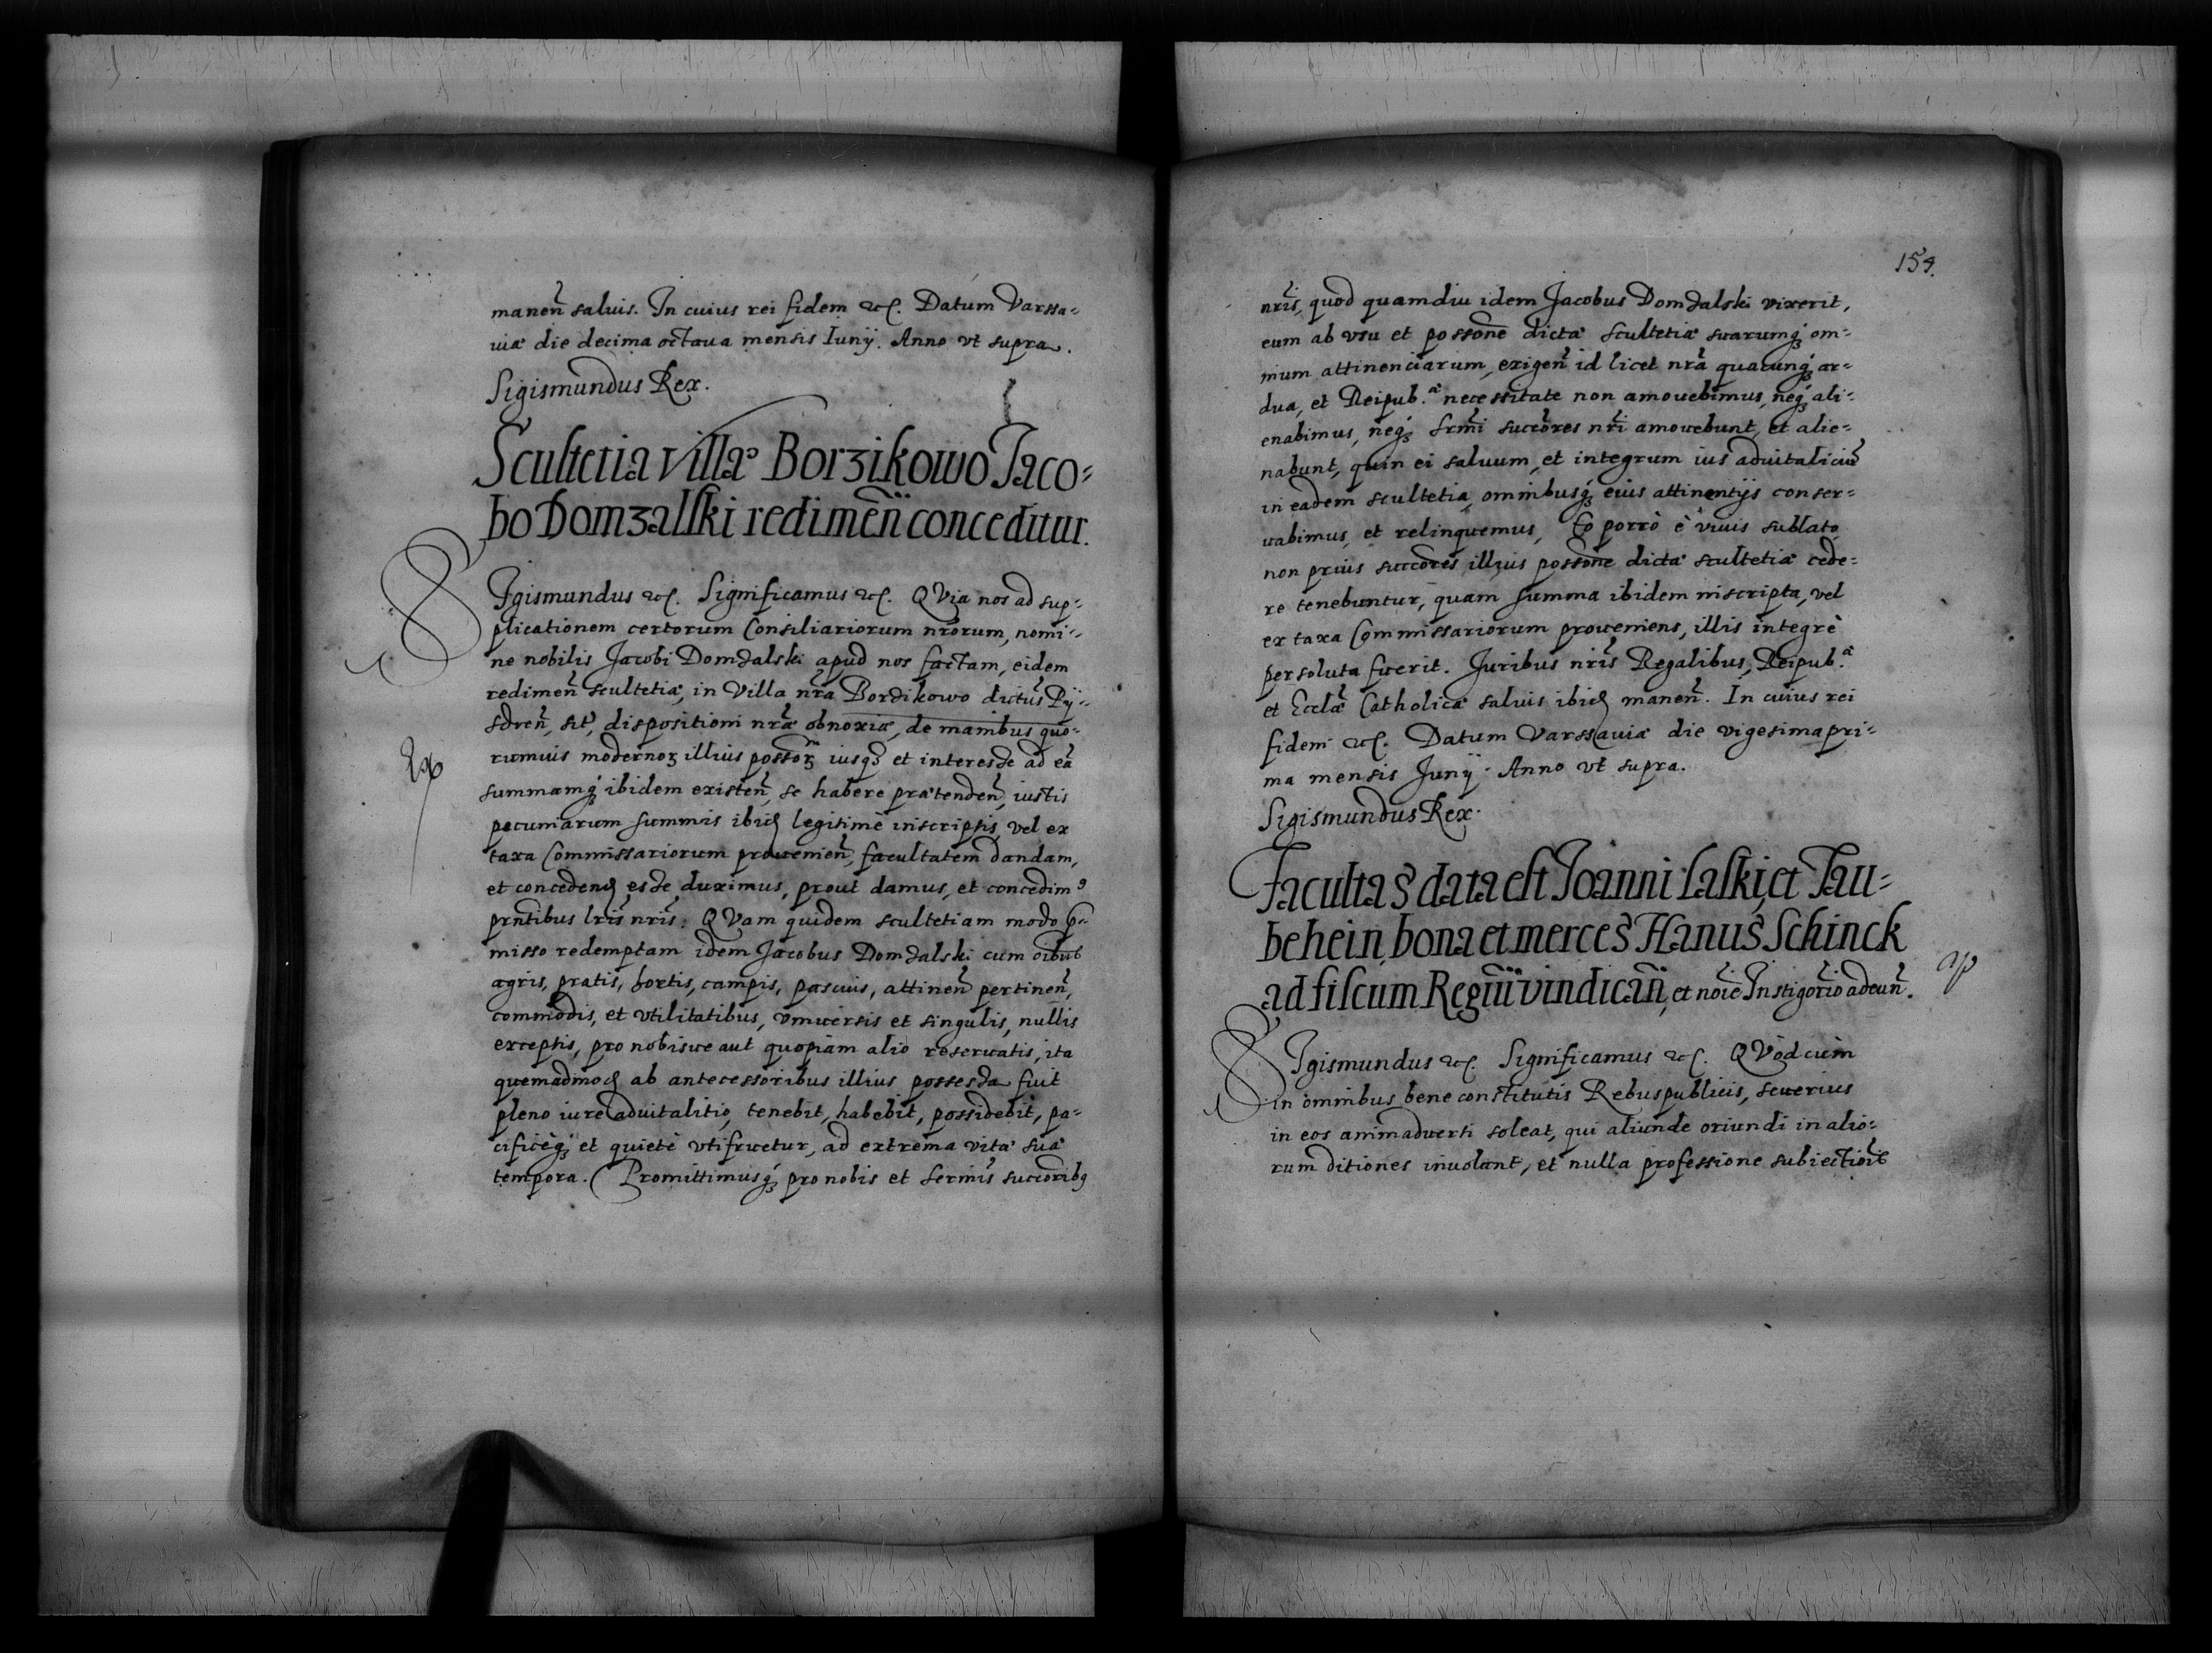 manen̄ saluis. In cuius rei fidem etc. Datum Varssa-
uiæ die decima octaua mensis Iunij. Anno vt supra.
Sigismundus Rex.
Scultetia villæ Borzikowo Jaco-
bo Domzalski redimen̄ conceditur.
SIgismundus etc. Significamus etc. QVia nos ad sup-
plicationem certorum Consiliariorum nr̄orum, nomi-
ne nobilis Jacobi Domzalski apud nos factam, eidem
redimen̄ scultetiæ, in Villa nr̄a Borzikowo dictus Py-
sdren̄, sit̄, dispositioni nr̄æ obnoxiæ, de manibus quo-
rumuis modernoꝝ illius possoꝝ iusqꝫ et interesse ad eā
summamqꝫ ibidem existen̄, se habere prætenden̄, iustis
pecuniarum summis ibid legitimè inscriptis, vel ex
taxa Commissariorum prouenien̄, facultatem dandam,
et concedend esse duximus, prout damus, et concedimꝰ
prn̄tibus lr̄is nr̄is. QVam quidem scultetiam modo p-
misso redemptam idem Jacobus Domzalski cum oībus
agris, pratis, hortis, campis, pascuis, attinen̄ pertinen̄,
commodis, et vtilitatibus, vniuersis et singulis, nullis
exceptis, pro nobisue aut quopiam alio reseruatis, ita
quemadmod ab antecessoribus illius possessa fuit
pleno iure aduitalitio, tenebit, habebit, possidebit, pa-
cificèqꝫ et quietè vtifruetur, ad extrema vitæ suæ
tempora. Promittimusqꝫ pro nobis et Sermis̄ succoribꝫ
154.
nr̄is, quod quamdiu idem Jacobus Domzalski vixerit,
eum ab vsu et possone dictæ scultetiæ suarumqꝫ om-
nium attinenciarum, exigen̄ id licet nr̄a quacunqꝫ ar-
dua, et Reipub.æ necessitate non amouebimus, neqꝫ ali-
enabimus, neqꝫ Srm̄i succores nr̄i amouebunt, et alie-
nabunt, quin ei saluum, et integrum ius aduitaliciū
in eadem scultetia, omnibusqꝫ eius attinentijs conser-
uabimus, et relinquemus, Eo porrò è viuis sublato,
non prius succores illius possone dictæ scultetiæ cede-
re tenebuntur, quam summa ibidem inscripta, vel
ex taxa Commissariorum proueniens, illis integrè
persoluta fuerit. Juribus nr̄is Regalibus, Reipub.æ
et Ecclæ Catholicæ saluis ibid manen̄. In cuius rei
fidem etc. Datum Varssauiæ die vigesima pri-
ma mensis Junij. Anno vt supra.
Sigismundus Rex.
Facultas data est Joanni Laski, et Tau-
behein, bona et merces Hanus Schinck
ad fiscum Regiū vindican̄, et noīe Instigoris adeun̄.
SIgismundus etc. Significamus etc. QVòd cùm
in omnibus bene constitutis Rebuspublicis, seuerius
in eos animaduerti soleat, qui aliunde oriundi in alio-
rum ditiones inuolant, et nulla professione subiectionis